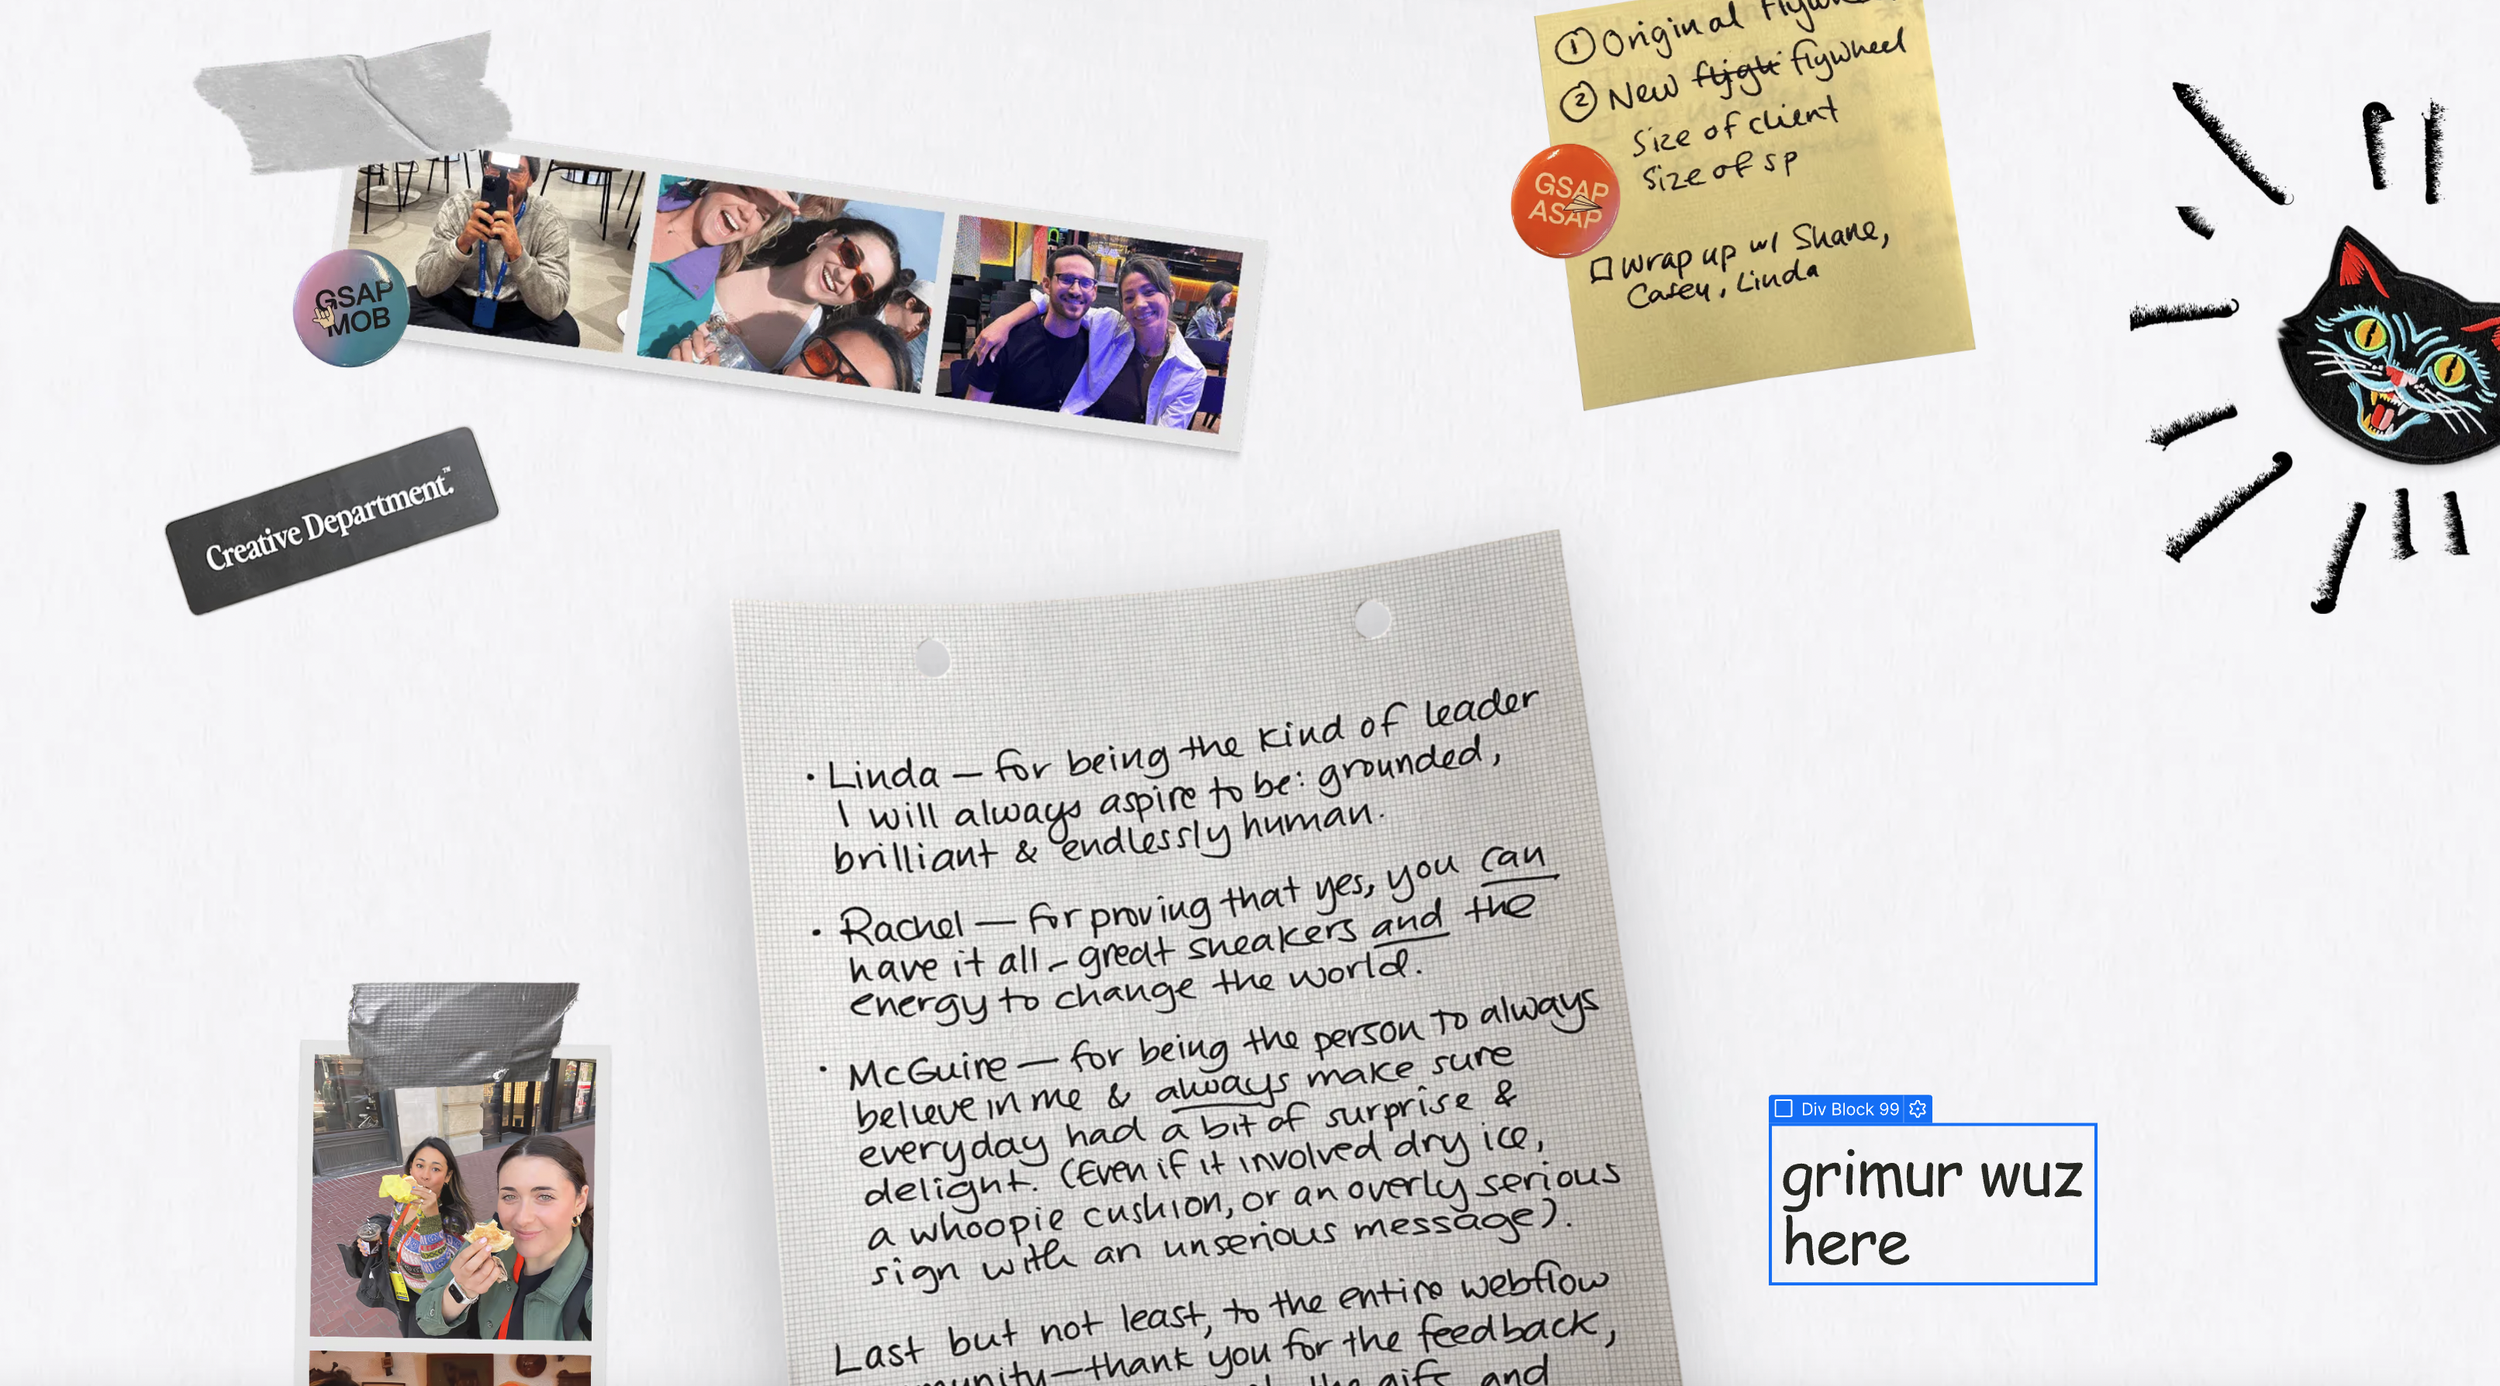 ① Original flyw
② New fligh flywheel
Size of client
Size of sp
☐ Wrap up w/ Shane,
Casey, Linda
GSAP
ASAP
GSAP
MOB
Creative Department.™
• Linda — for being the kind of leader
I will always aspire to be: grounded,
brilliant & endlessly human.
• Rachel — for proving that yes, you can
have it all – great sneakers and the
energy to change the world.
• McGuire — for being the person to always
believe in me & always make sure
everyday had a bit of surprise &
delight. (Even if it involved dry ice,
a whoopie cushion, or an overly serious
sign with an unserious message).
Last but not least, to the entire webflow
munity—thank you for the feedback,
the gifs and
Div Block 99
grimur wuz
here